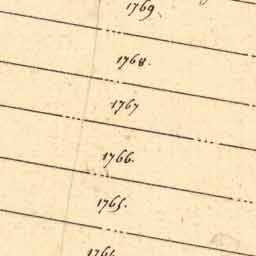 1769.
1768.
1767
1766.
1765.